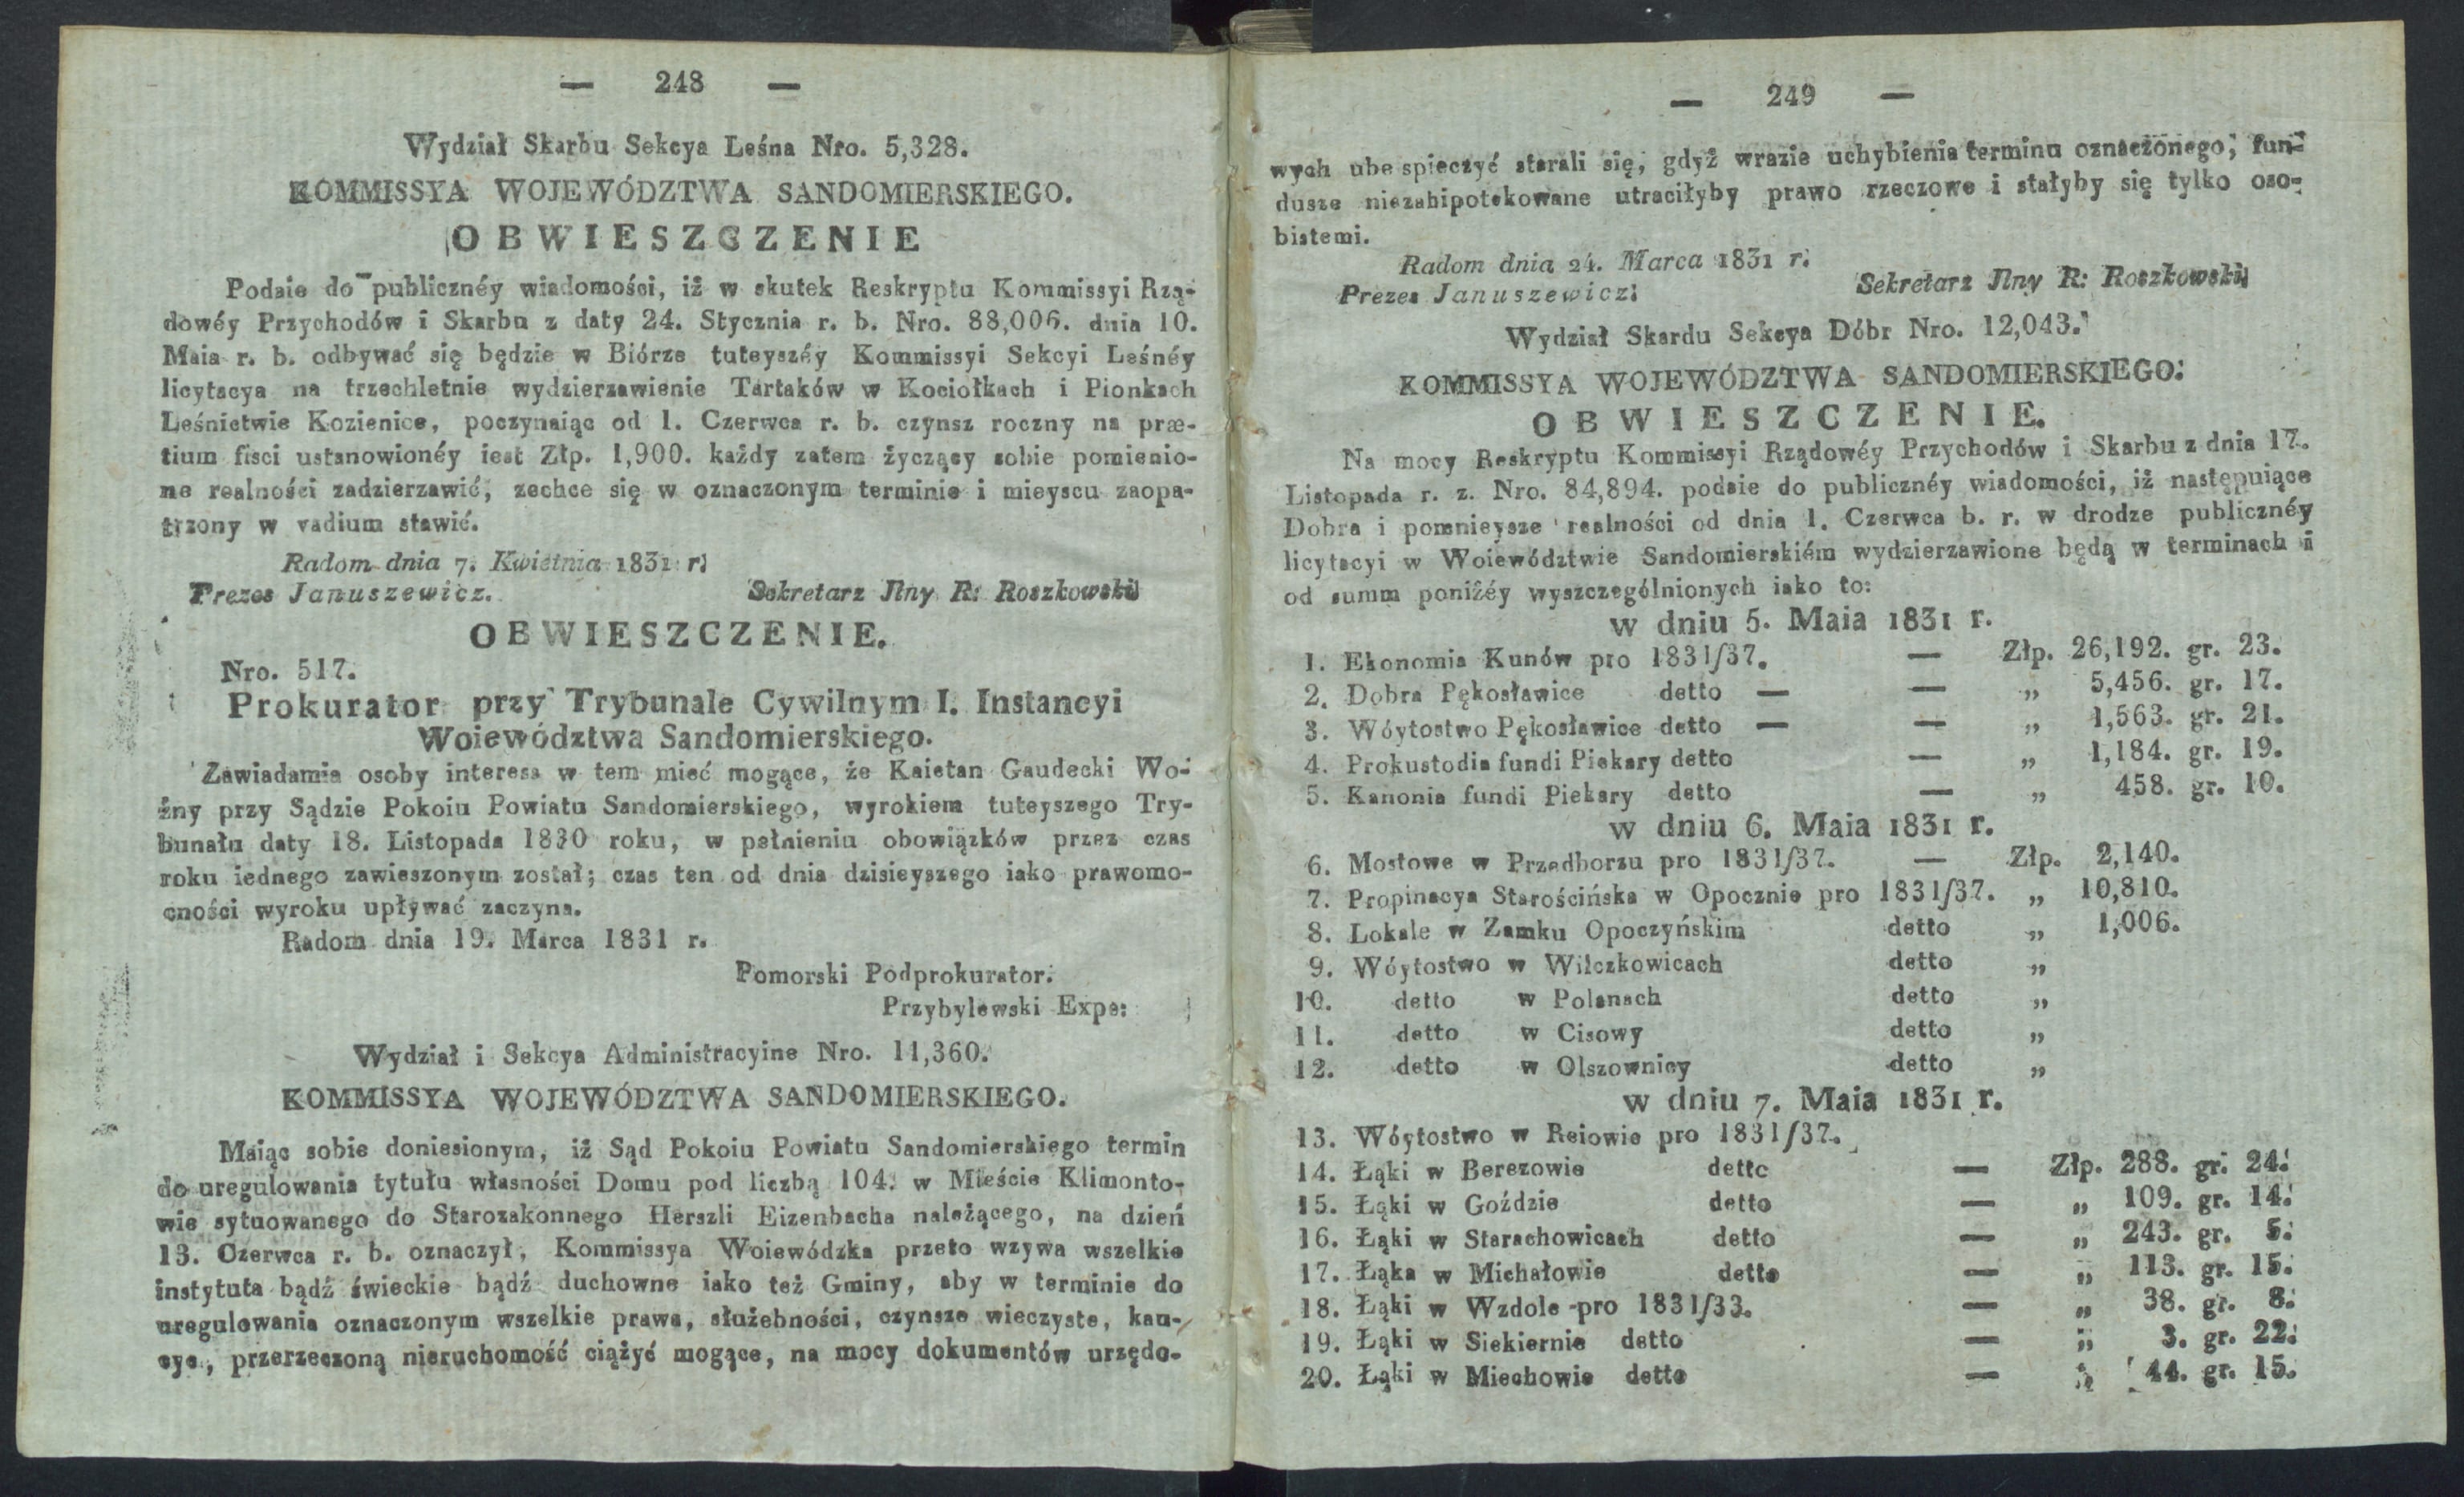 — 248 —
Wydział Skarbu Sekcya Leśna Nro. 5,328.
KOMMISSYA WOJEWÓDZTWA SANDOMIERSKIEGO.
OBWIESZCZENIE
Podaie do publicznéy wiadomości, iż w skutek Reskryptu Kommissyi Rzą-
dowéy Przychodów i Skarbu z daty 24. Stycznia r. b. Nro. 88,006. dnia 10.
Maia r. b. odbywać się będzie w Biórze tuteyszéy Kommissyi Sekcyi Leśnéy
licytacya na trzechletnie wydzierzawienie Tartaków w Kociołkach i Pionkach
Leśnictwie Kozienice, poczynaiąc od 1. Czerwca r. b. czynsz roczny na præ-
tium fisci ustanowionéy iest Złp. 1,900. każdy zatem życzący sobie pomienio-
ne realności zadzierzawić, zechce się w oznaczonym terminie i mieyscu zaopa-
trzony w vadium stawić.
Radom dnia 7. Kwietnia 1831 r.
Prezes Januszewicz. Sekretarz Jlny R: Roszkowski
OBWIESZCZENIE.
Nro. 517.
Prokurator przy Trybunale Cywilnym I. Instancyi
Woiewództwa Sandomierskiego.
Zawiadamia osoby interess w tem mieć mogące, że Kaietan Gaudecki Wo-
źny przy Sądzie Pokoiu Powiatu Sandomierskiego, wyrokiem tuteyszego Try-
bunału daty 18. Listopada 1830 roku, w pełnieniu obowiązków przez czas
roku iednego zawieszonym został; czas ten od dnia dzisieyszego iako prawomo-
cności wyroku upływać zaczyna.
Radom dnia 19. Marca 1831 r.
Pomorski Podprokurator.
Przybylewski Expe:
Wydział i Sekcya Administracyine Nro. 11,360.
KOMMISSYA WOJEWÓDZTWA SANDOMIERSKIEGO.
Maiąc sobie doniesionym, iż Sąd Pokoiu Powiatu Sandomierskiego termin
do uregulowania tytułu własności Domu pod liczbą 104. w Mieście Klimonto-
wie sytuowanego do Starozakonnego Herszli Eizenbacha należącego, na dzień
13. Czerwca r. b. oznaczył, Kommissya Woiewódzka przeto wzywa wszelkie
instytuta bądź świeckie bądź duchowne iako też Gminy, aby w terminie do
uregulowania oznaczonym wszelkie prawa, służebności, czynsze wieczyste, kau-
cye, przerzeczoną nieruchomość ciążyć mogące, na mocy dokumentów urzędo-
— 249 —
wych ube spieczyć starali się, gdyż wrazie uchybienia terminu oznaczonego, fun-
dusze niezahipotekowane utraciłyby prawo rzeczowe i stałyby się tylko oso-
bistemi.
Radom dnia 24. Marca 1831 r.
Prezes Januszewicz. Sekretarz Jlny R: Roszkowski
Wydział Skardu Sekcya Dóbr Nro. 12,043.
KOMMISSYA WOJEWÓDZTWA SANDOMIERSKIEGO.
OBWIESZCZENIE.
Na mocy Reskryptu Kommissyi Rządowéy Przychodów i Skarbu z dnia 17.
Listopada r. z. Nro. 84,894. podaie do publicznéy wiadomości, iż następuiące
Dobra i pomnieysze realności od dnia 1. Czerwca b. r. w drodze publicznéy
licytacyi w Woiewództwie Sandomierskiém wydzierzawione będą w terminach i
od summ poniżéy wyszczególnionych iako to:
w dniu 5. Maia 1831 r.
1. Ekonomia Kunów pro 1831/37. — Złp. 26,192. gr. 23.
2. Dobra Pękosławice detto — — „ 5,456. gr. 17.
3. Wóytostwo Pękosławice detto — — „ 1,563. gr. 21.
4. Prokustodia fundi Piekary detto — „ 1,184. gr. 19.
5. Kanonia fundi Piekary detto — „ 458. gr. 10.
w dniu 6. Maia 1831 r.
6. Mostowe w Przedborzu pro 1831/37. — Złp. 2,140.
7. Propinacya Starościńska w Opocznie pro 1831/37. „ 10,810.
8. Lokale w Zamku Opoczyńskim detto „ 1,006.
9. Wóytostwo w Wilczkowicach detto „
10. detto w Polanach detto „
11. detto w Cisowy detto „
12. detto w Olszownicy detto „
w dniu 7. Maia 1831 r.
13. Wóytostwo w Reiowie pro 1831/37.
14. Łąki w Berezowie detto — Złp. 288. gr. 24.
15. Łąki w Goździe detto — „ 109. gr. 14.
16. Łąki w Starachowicach detto — „ 243. gr. 5.
17. Łąka w Michałowie detto — „ 113. gr. 15.
18. Łąki w Wzdole pro 1831/33. — „ 38. gr. 8.
19. Łąki w Siekiernie detto — „ 3. gr. 22.
20. Łąki w Miechowie detto — „ 44. gr. 15.